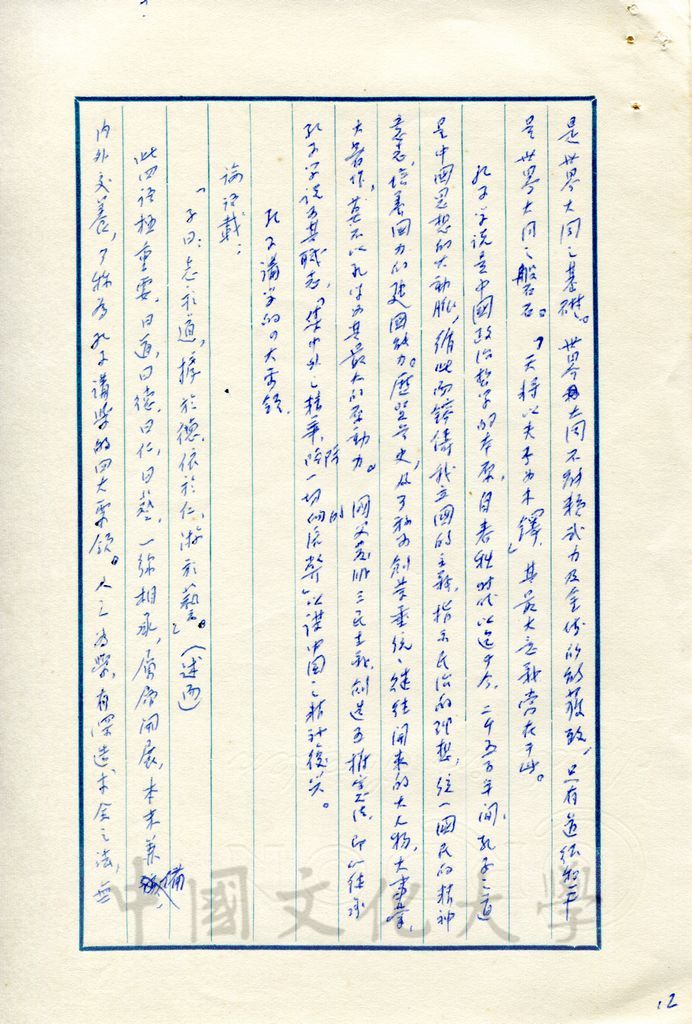 是世界大同之基礎。世界大同不能賴武力及金錢所能獲致，只有道德和平
是世界大同之磐石。「天將以夫子為木鐸」其最大意義當在于此。
孔子学說是中國政治哲学的本原，自春秋時代以迄于今，二千五百年間，孔子之道
是中國思想的大動脈，循此而鎔鑄我立國的主義，指示民治的理想，統一國民的精神
意志，培養國力的建國能力。歷覽今史，及了創業垂統、繼往開來的大人物，大事業，
大著作，莫不以孔学為其最大的原動力。國父發明三民主義，創造五權憲法，即以繼承
孔子学說為其職志，「集中外之精華，防除一切的流弊」以謀中國之精神復興。
孔子講学的四大要領
論語載：
「子曰：志於道，據於德，依於仁，游於藝。」（述而）
此四語極重要，曰道，曰德，曰仁，曰藝，一線相承，層層開展，本末兼備，
內外交養，可稱為孔子講學的四大要領。人之為學，有深造求全之法，無
中國文化大學
12